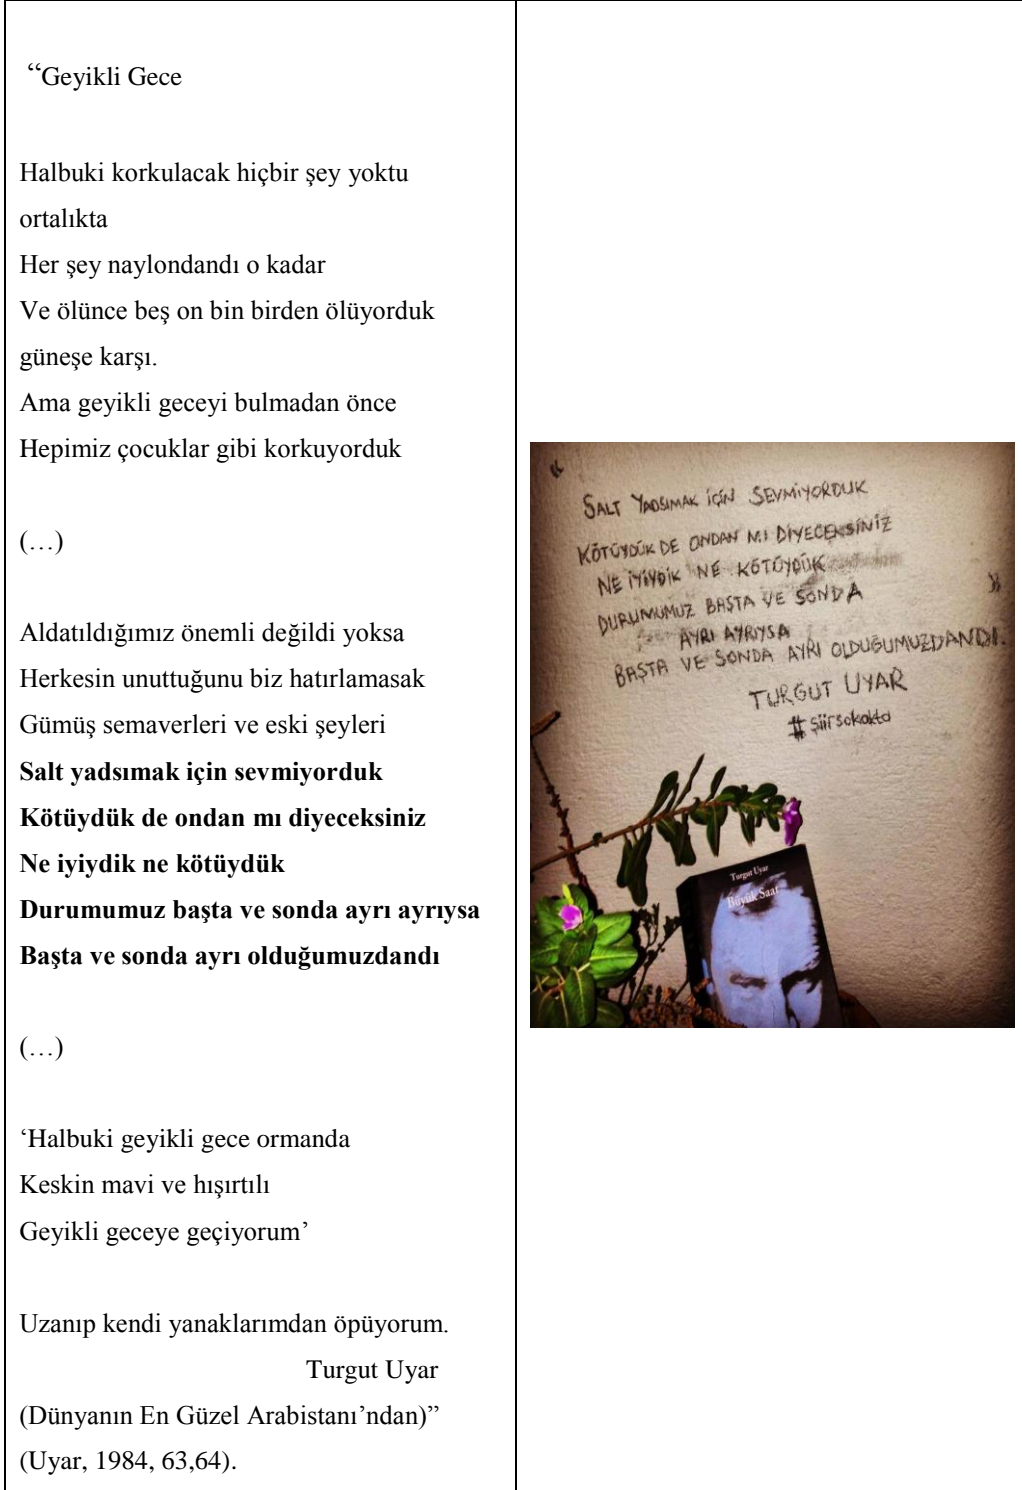 “Geyikli Gece
Halbuki korkulacak hiçbir şey yoktu
ortalıkta
Her şey naylondandı o kadar
Ve ölünce beş on bin birden ölüyorduk
güneşe karşı.
Ama geyikli geceyi bulmadan önce
Hepimiz çocuklar gibi korkuyorduk
(…)
Aldatıldığımız önemli değildi yoksa
Herkesin unuttuğunu biz hatırlamasak
Gümüş semaverleri ve eski şeyleri
Salt yadsımak için sevmiyorduk
Kötüydük de ondan mı diyeceksiniz
Ne iyiydik ne kötüydük
Durumumuz başta ve sonda ayrı ayrıysa
Başta ve sonda ayrı olduğumuzdandı
(…)
‘Halbuki geyikli gece ormanda
Keskin mavi ve hışırtılı
Geyikli geceye geçiyorum’
Uzanıp kendi yanaklarımdan öpüyorum.
Turgut Uyar
(Dünyanın En Güzel Arabistanı’ndan)”
(Uyar, 1984, 63,64).
“ SALT YADSIMAK İÇİN SEVMİYORDUK
KÖTÜYDÜK DE ONDAN MI DİYECEKSİNİZ
NE İYİYDİK NE KÖTÜYDÜK
DURUMUMUZ BAŞTA VE SONDA
AYRI AYRIYSA
BAŞTA VE SONDA AYRI OLDUĞUMUZDANDI. ”
TURGUT UYAR
#şiirsokakta
Turgut Uyar
Büyük Saat